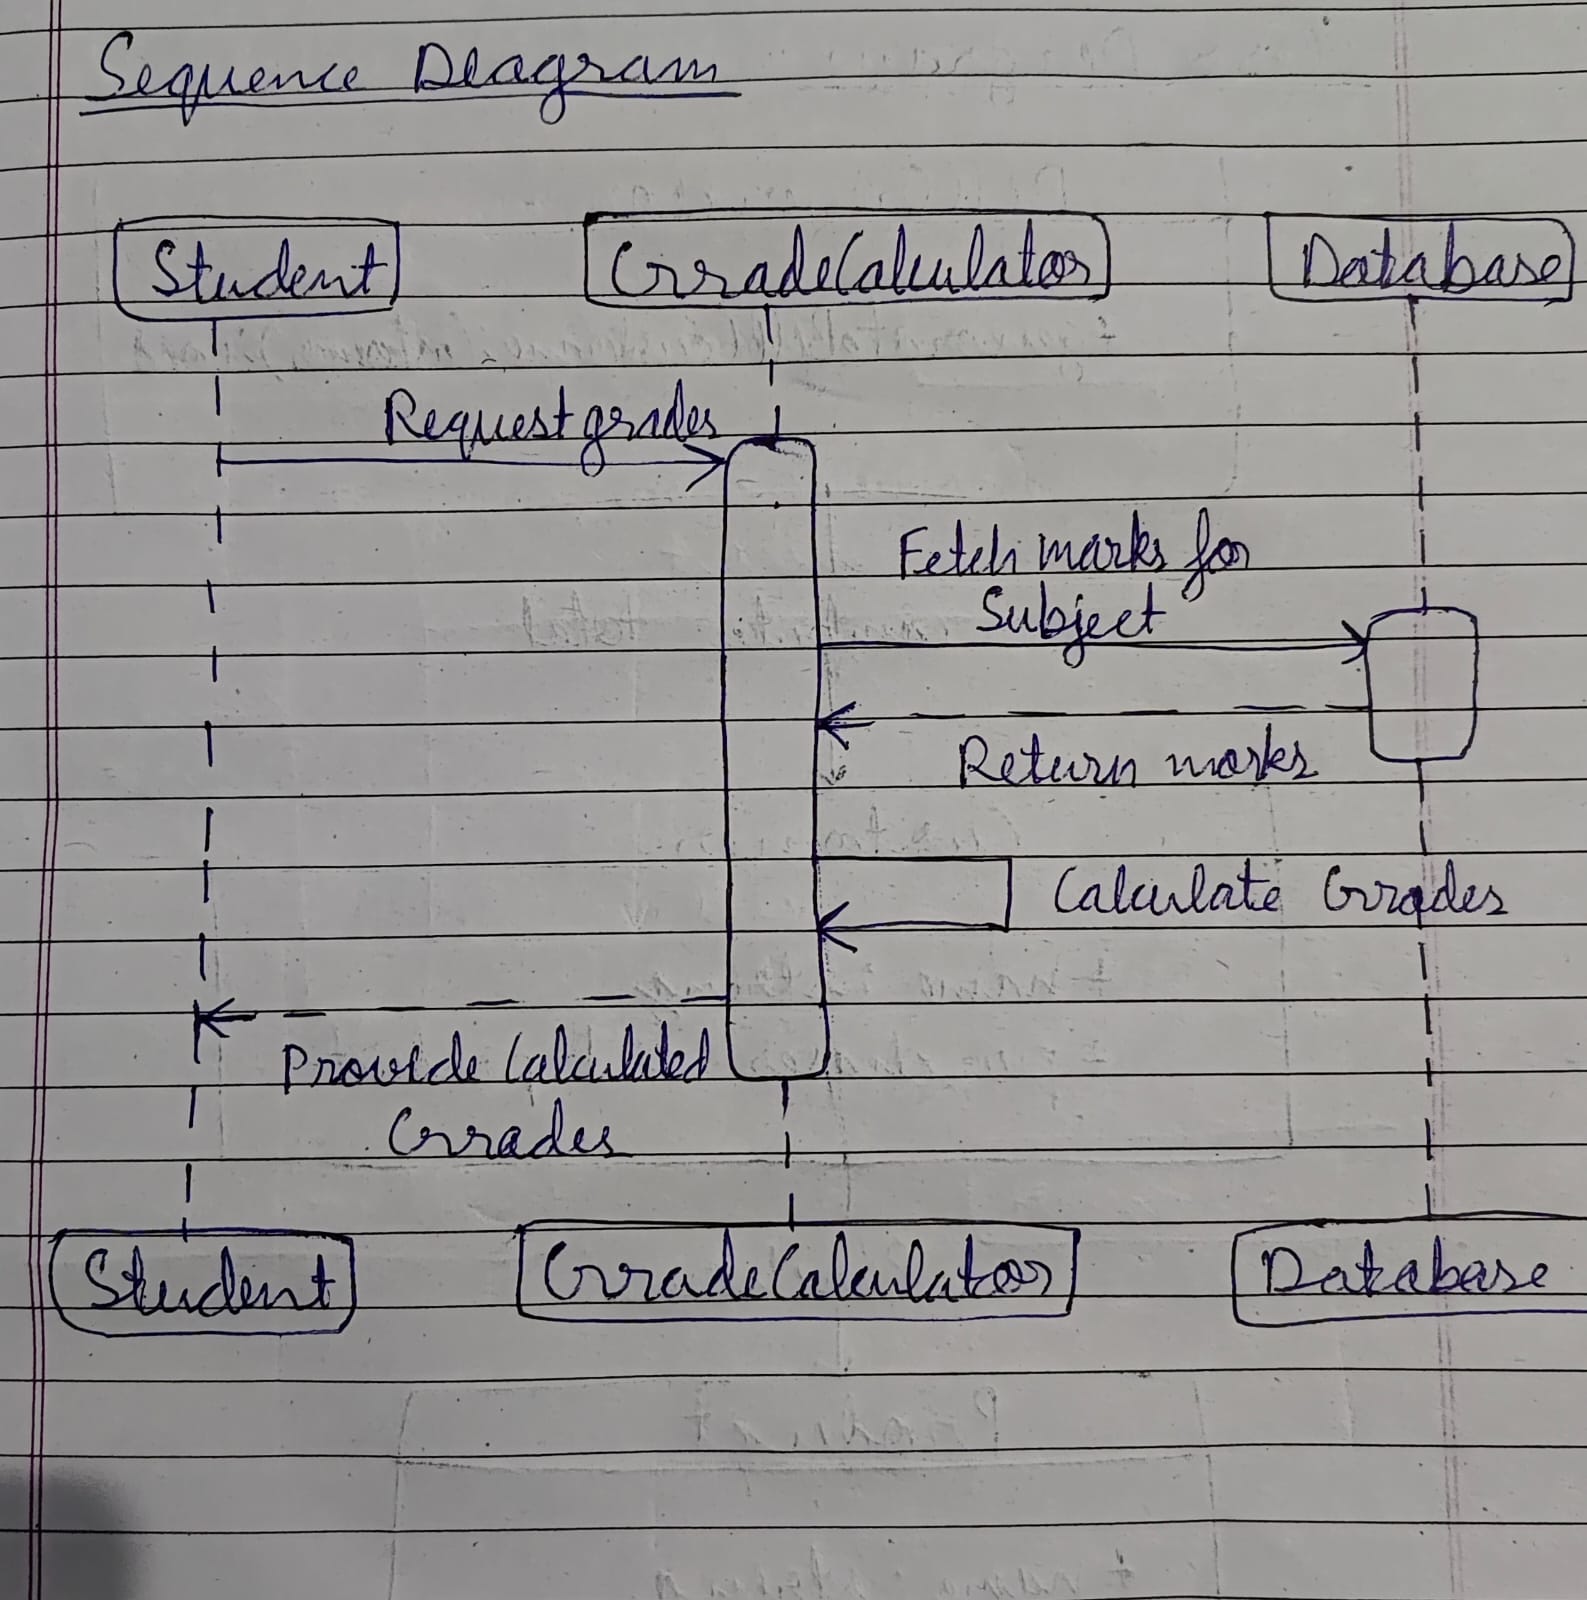 Sequence Diagram
Student GradeCalculator Database
Request grades
Fetch marks for
Subject
Return marks
Calculate Grades
Provide Calculated
Grades
Student GradeCalculator Database